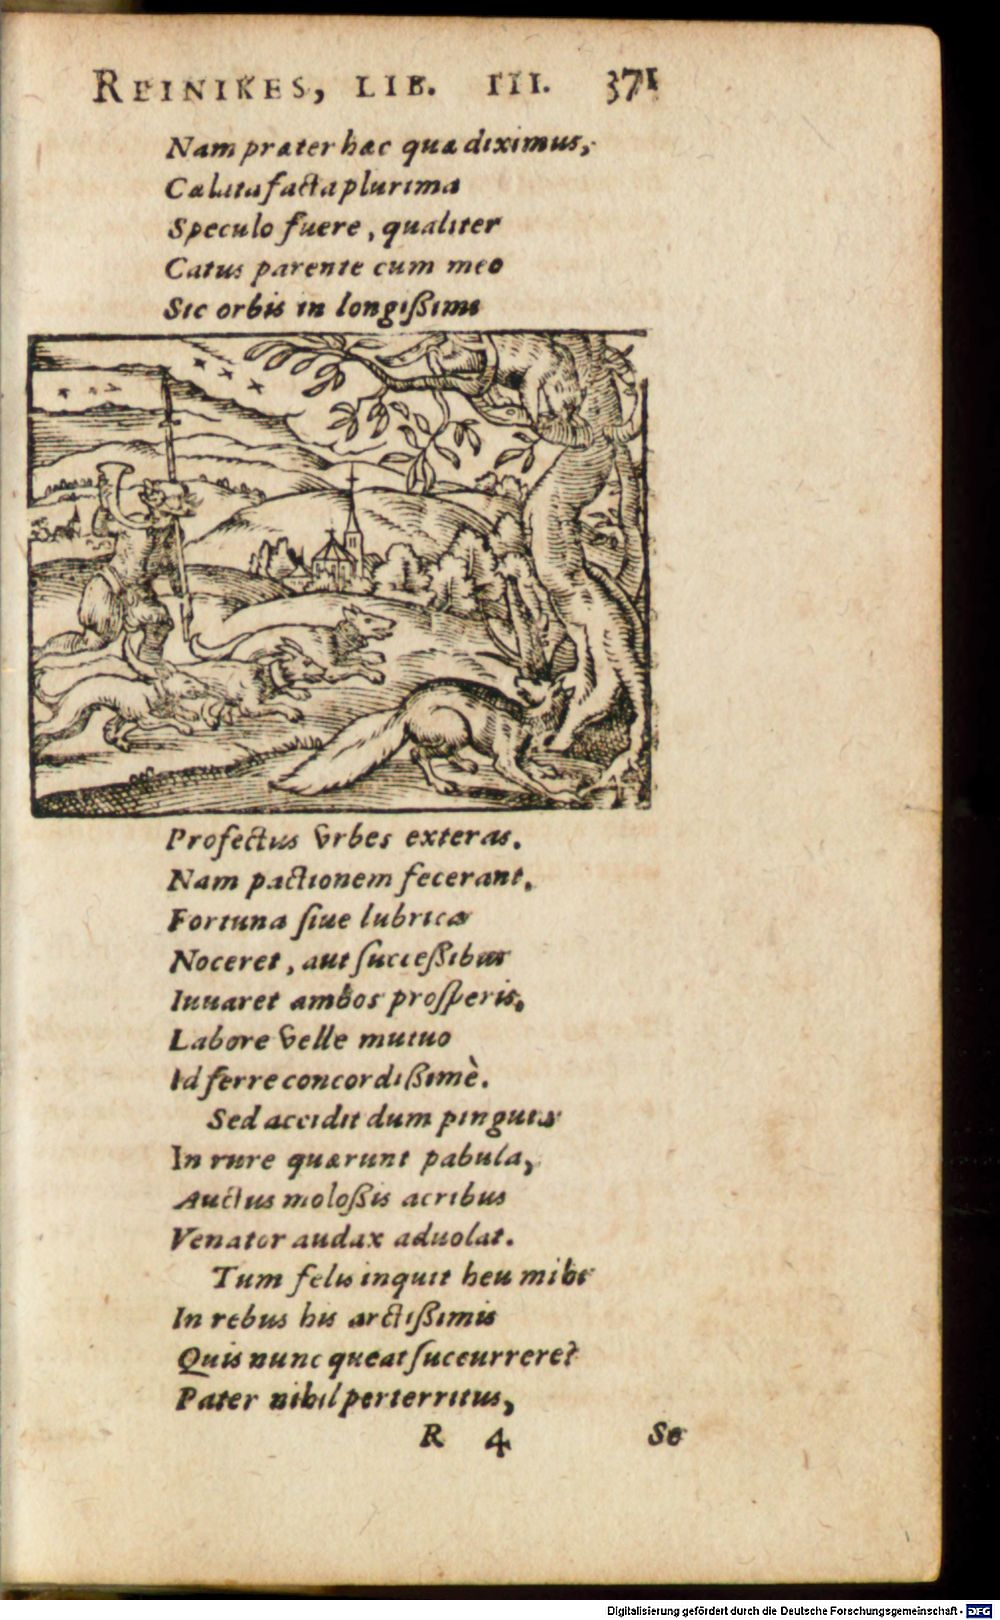 REINIKES, LIB. III. 371
Nam præter hæc quæ diximus,
Cælata facta plurima
Speculo fuere, qualiter
Catus parente cum meo
Sic orbis in longißimi
Profectus vrbes exteras.
Nam pactionem fecerant,
Fortuna ſiue lubrica
Noceret, aut ſucceßibus
Iuuaret ambos proſperis,
Labore velle mutuo
Id ferre concordißimè.
Sed accidit dum pinguia
In rure quærunt pabula,
Auctus moloßis acribus
Venator audax aduolat.
Tum felis inquit heu mihi
In rebus his arctißimis
Quis nunc queat ſuccurrere?
Pater nihil perterritus,
R 4 Se
Digitalisierung gefördert durch die Deutsche Forschungsgemeinschaft - DFG